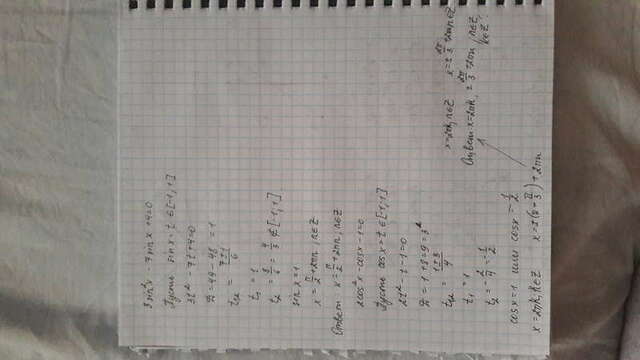 3sin²x - 7sinx + 4 = 0
Пусть sinx = t ∈ [-1;1]
3t² - 7t + 4 = 0
D = 49 - 48 = 1
t₁,₂ = (7±1)/6
t₁ = 1
t₂ = 8/6 = 4/3 ∉ [-1;1]
sinx = 1
x = π/2 + 2πn, n∈Z
Ответ: x = π/2 + 2πn, n∈Z
2cos²x - cosx - 1 = 0
Пусть cosx = t ∈ [-1;1]
2t² - t - 1 = 0
D = 1 + 8 = 9 = 3²
t₁,₂ = (1±3)/4
t₁ = 1
t₂ = -2/4 = -1/2
cosx = 1 или cosx = -1/2
x = 2πk, k∈Z x = ±(π - π/3) + 2πn
x = 2πk, k∈Z x = ± 2π/3 + 2πn, n∈Z
Ответ: x = 2πk, ± 2π/3 + 2πn, n∈Z,
k∈Z.